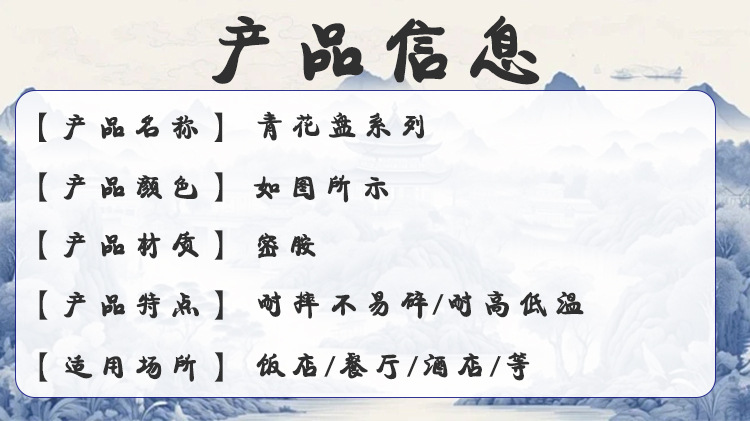 产品信息
【产品名称】 青花盘系列
【产品颜色】 如图所示
【产品材质】 密胺
【产品特点】 耐摔不易碎/耐高低温
【适用场所】 饭店/餐厅/酒店/等